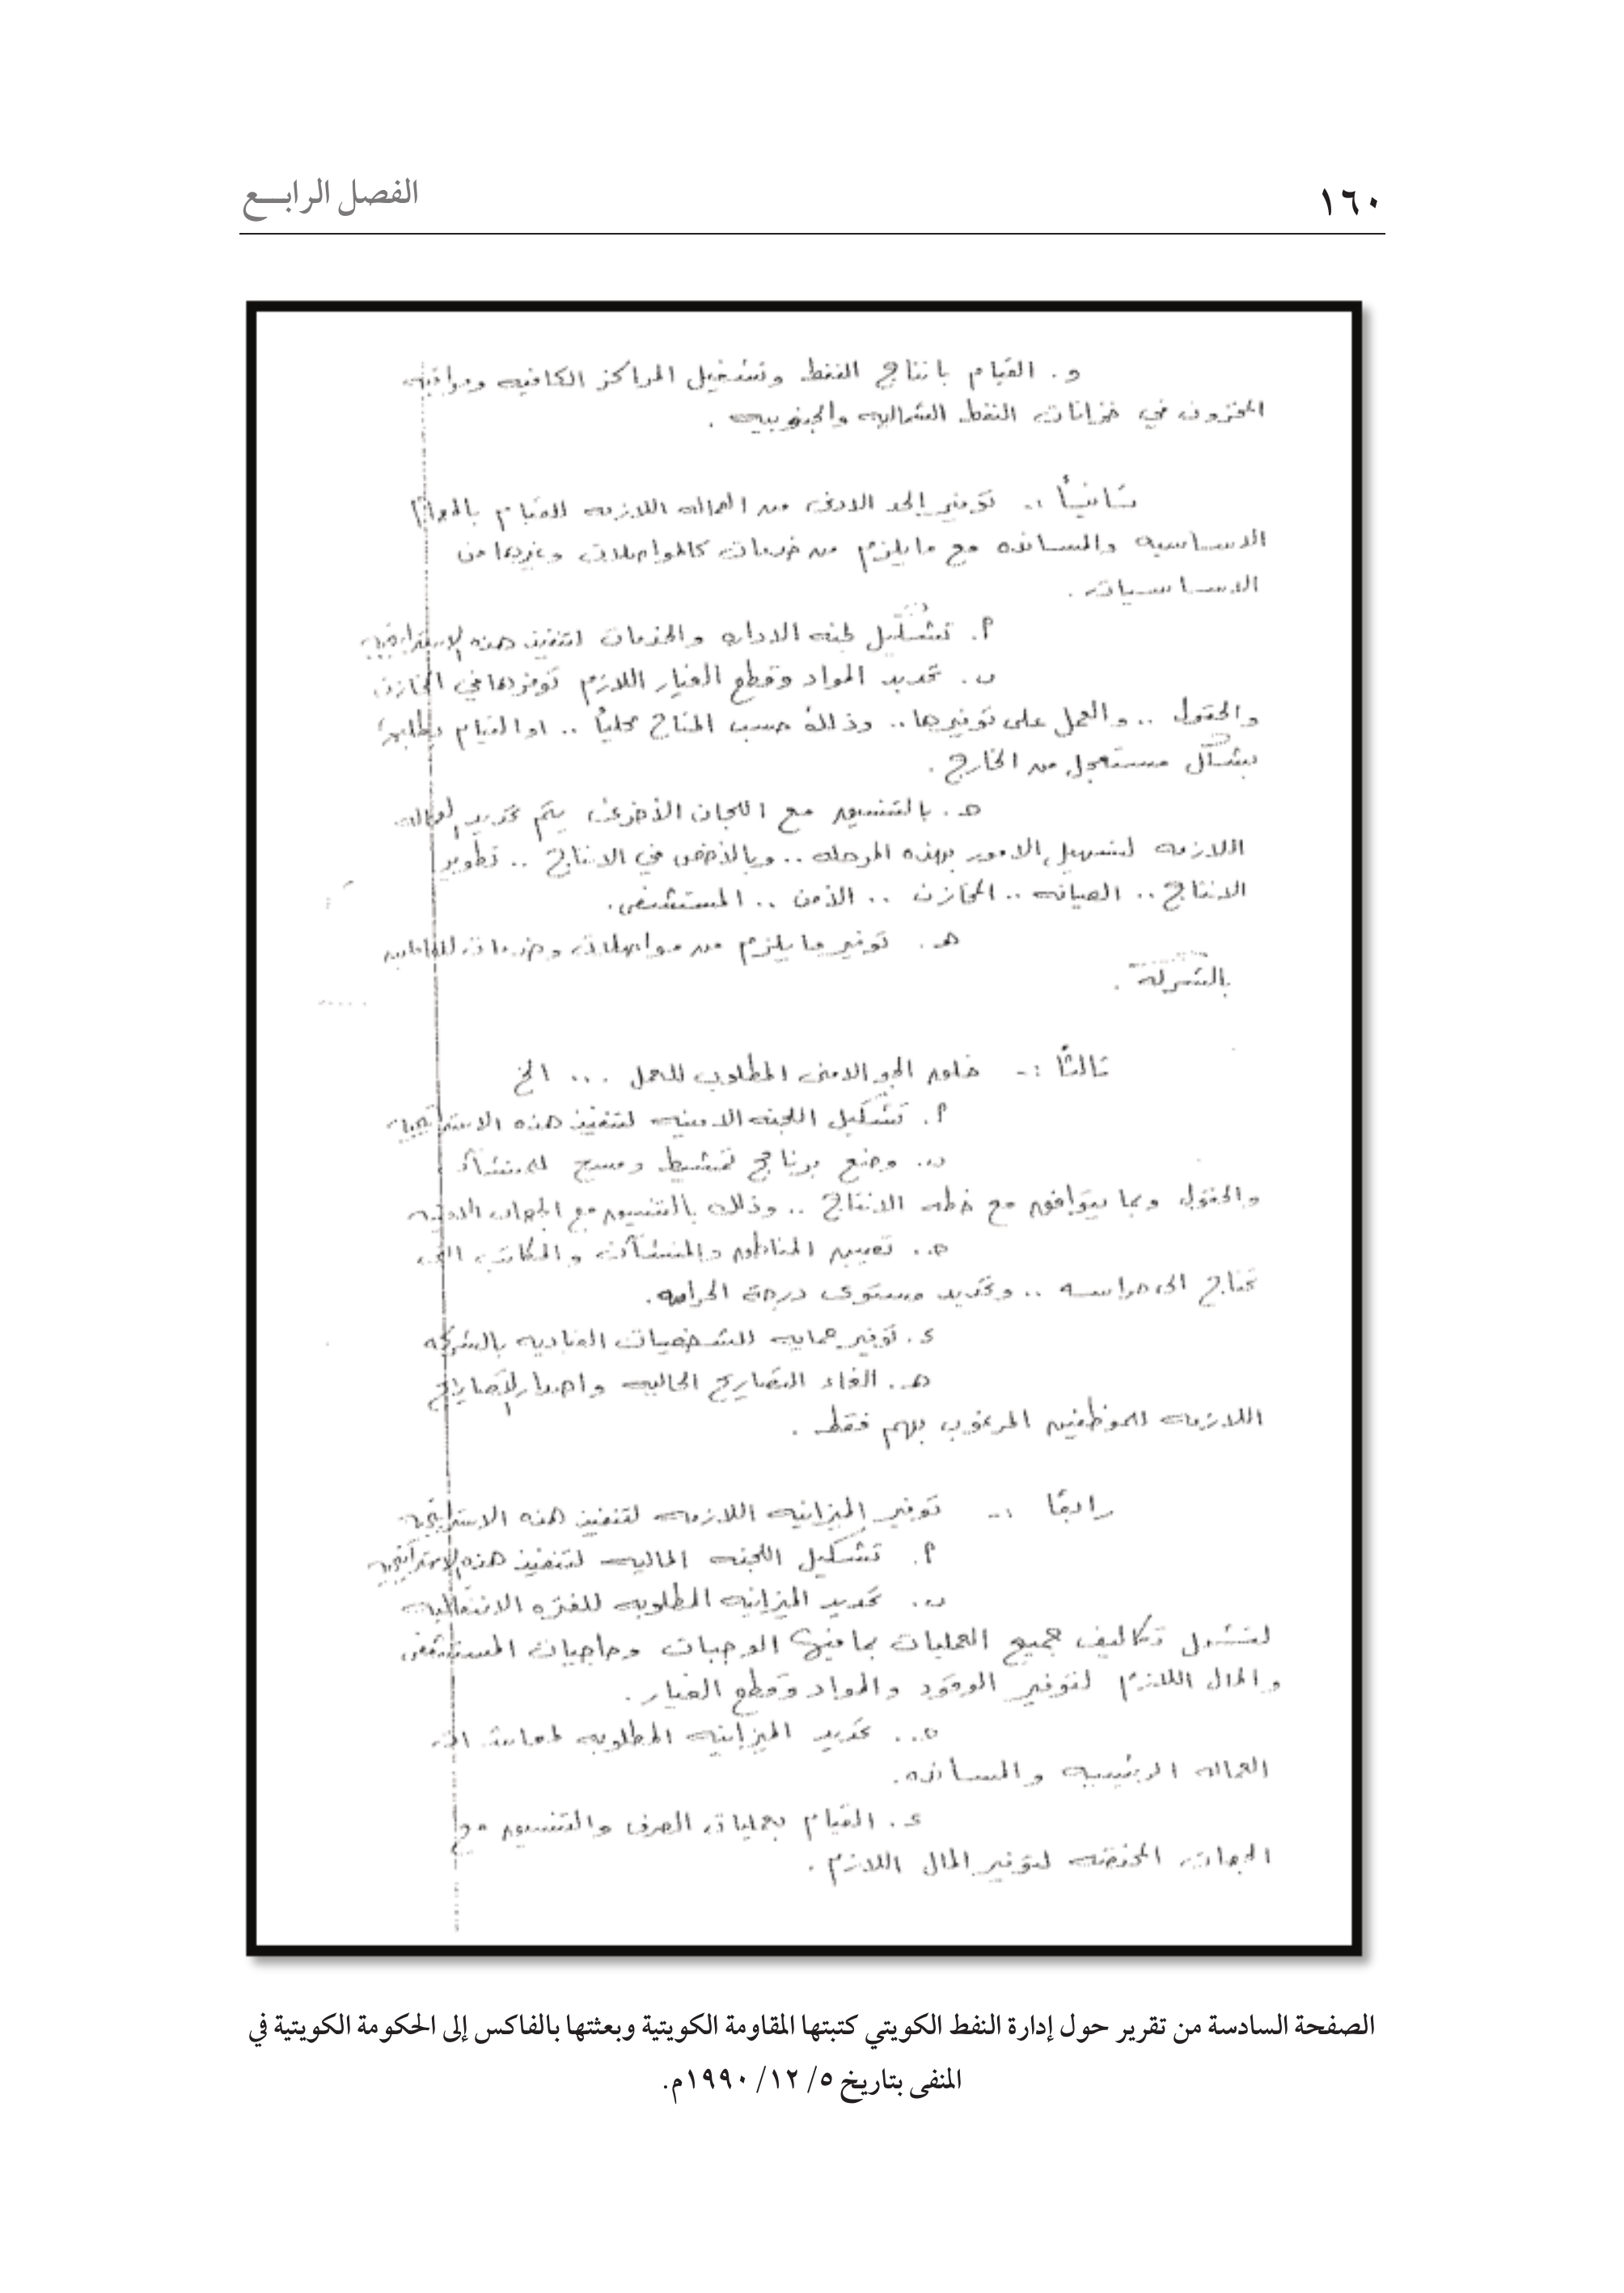 ١٦٠
الفصل الرابـــع
و. القيام بانتاج النفط وتشغيل المراكز الكافيه ومراقبة
المخزون في خزانات النفط الشماليه والجنوبيه .
ثانيـاً :- توفير الحد الادنى من العماله اللازمه للقيام بالمهام
الاساسيه والمسانده مع مايلزم من خدمات كالمواصلات وغيرها من
الاساسيات .
أ. تشكيل لجنه الاداره والخدمات لتنفيذ هذه الاستراتيجيه
ب. تحديد المواد وقطع الغيار اللازم توفرها في المخازن
والحقول .. والعمل على توفيرها .. وذلك حسب المتاح محلياً .. او القيام بطلبها
بشكل مستعجل من الخارج .
حـ. بالتنسيق مع اللجان الأخرى يتم تحديد العماله
اللازمه لتسهيل الامور بهذه المرحله .. وبالأخص في الانتاج .. تطوير
الانتاج .. الصيانه .. المخازن .. الأمن .. المستشفى .
هـ. توفير ما يلزم من مواصلات وخدمات للعاملين
بالشركه .
ثالثاً :- خلق الجو الامنى المطلوب للعمل ... الخ
أ. تشكيل اللجنه الامنيه لتنفيذ هذه الاستراتيجيه
ب. وضع برنامج تمشيط ومسح للمنشآت
والحقول وبما يتوافق مع خطه الانتاج .. وذلك بالتنسيق مع الجهات
حـ. تعيين المناطق والمنشآت والمكاتب التى
تحتاج الى حراسه .. وتحديد مستوى درجة الحراسه.
ء. توفير حمايه للشخصيات القياديه بالشركه
هـ. الغاء التصاريح الحاليه واصدار التصاريح
اللازمه للموظفين المرغوب بهم فقط .
رابعًا :- توفير الميزانيه اللازمه لتنفيذ هذه الاستراتيجيه
أ. تشكيل اللجنه الماليه لتنفيذ هذه الاستراتيجيه
ب. تحديد الميزانيه المطلوبه للفتره الانتقاليه
لتشمل تكاليف جميع العمليات بما فيها الوجبات وحاجيات المستشفى
والمال اللازم لتوفير الوقود والمواد وقطع الغيار .
حـ. تحديد الميزانيه المطلوبه
العماله الرئيسيه والمسانده.
ء. القيام بعمليات الصرف والتنسيق مع
الجهات المختصه لتوفير المال اللازم .
الصفحة السادسة من تقرير حول إدارة النفط الكويتي كتبتها المقاومة الكويتية وبعثتها بالفاكس إلى الحكومة الكويتية في
المنفى بتاريخ ٥/ ١٢/ ١٩٩٠م.